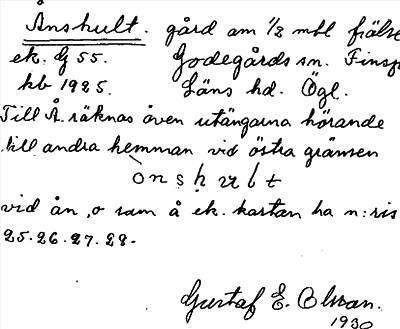 Ånshult. gård am 1/2 mtl frälse
ek. G 55. Godegårds sn. Finsp
kb 1925. Läns hd. Ögl.
Till Å. räknas även utängarna hörande
till andra hemman vid östra gränsen
ònshult
vid ån, o sam å ek. kartan ha n:ris
25.26.27.28.
Gustaf E. Olsson.
1930